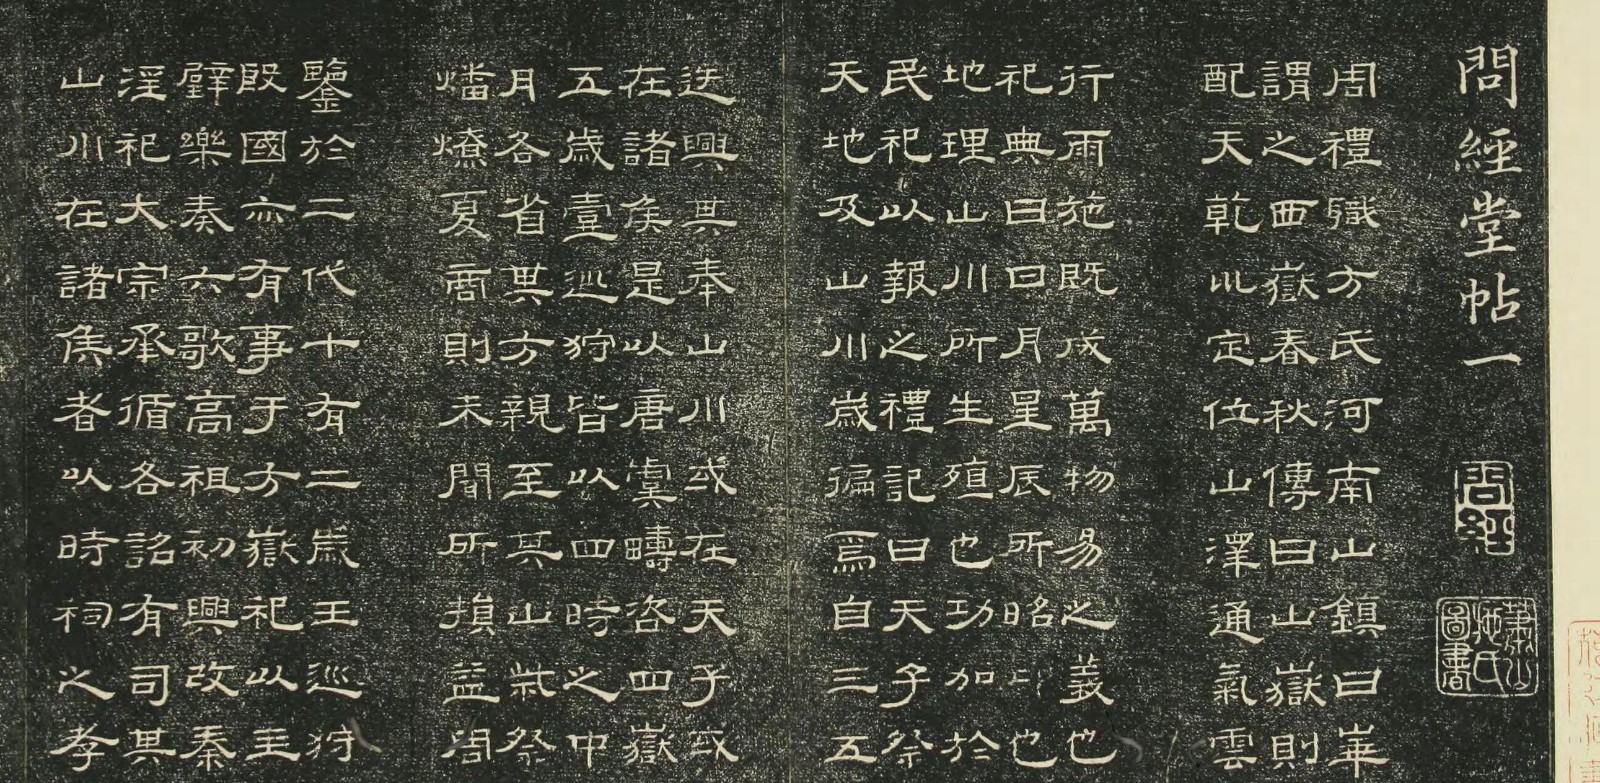 問經堂帖一
問經
蕭山施氏圖書
周禮職方氏河南山鎮曰崋
謂之西嶽春秋傳曰山嶽則
配天乾㐲定位山澤通氣雲
行雨施既成萬物易之義也
祀典曰日月星辰所昭卬也
地理山川所生殖也功加於
民祀以報之禮記曰天子祭
天地及山川歲徧焉自三五
迭興其奉山川或在天子或
在諸矦是以唐虞疇咨四嶽
五歲壹巡狩皆以四時之中
月各省其方親至其山柴祭
燔燎夏商則未聞所損益周
鑒於二代十有二歲王巡狩
殷國亦有事于方嶽祀以圭
璧樂奏六歌高祖初興改秦
淫祀大宗承循各詔有司其
山川在諸矦者以時祠之孝